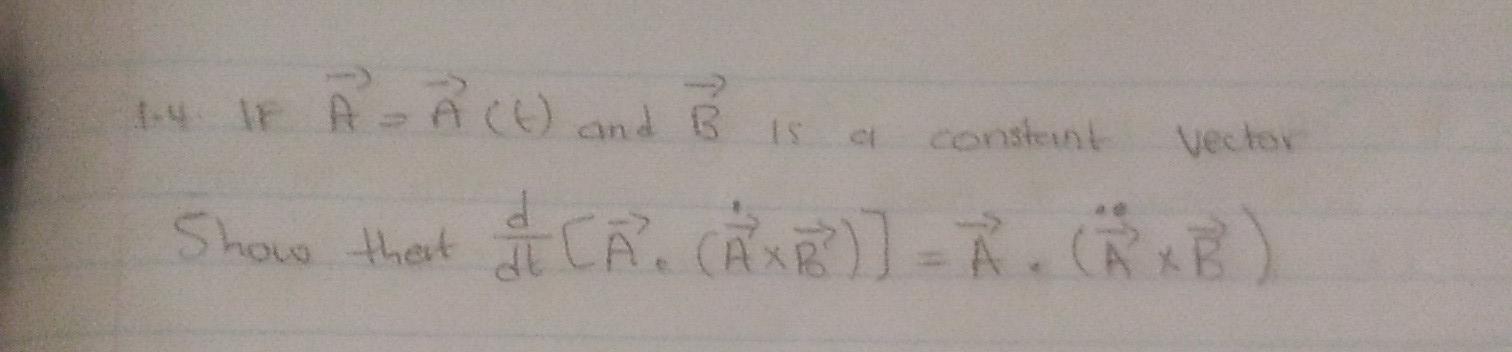 1.4. If A⃗ = A⃗(t) and B⃗ is a constant vector
Show that d/dt [A⃗ . (Ȧ⃗ × B⃗)] = A⃗ . (Ä⃗ × B⃗)